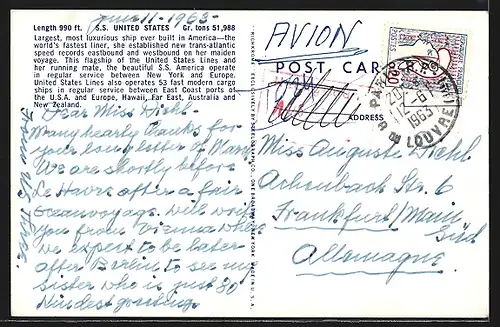 June 11-1963-
Length 990 ft. S.S. UNITED STATES Gr. tons 51,988
Largest, most luxurious ship ever built in America—the
world's fastest liner, she established new trans-atlantic
speed records eastbound and westbound on her maiden
voyage. This flagship of the United States Lines and
her running mate, the beautiful S.S. America operate
in regular service between New York and Europe.
United States Lines also operates 53 fast modern cargo
ships in regular service between East Coast ports of
the U.S.A. and Europe, Hawaii, Far East, Australia and
New Zealand.
Dear Miss Diehl-
Many hearty thanks for
your long letter of May.
We are shortly before
Le Havre after a fair
ocean voyage. Will write
you from Vienna where
we expect to be later
after Berlin to see my
sister who is just 80
Kindest greetings
AVION
POST CARD
ADDRESS
PARIS
1963
LOUVRE
Miss Auguste Diehl
Achenbach Str. 6
Frankfurt/Main
Süd
Allemagne